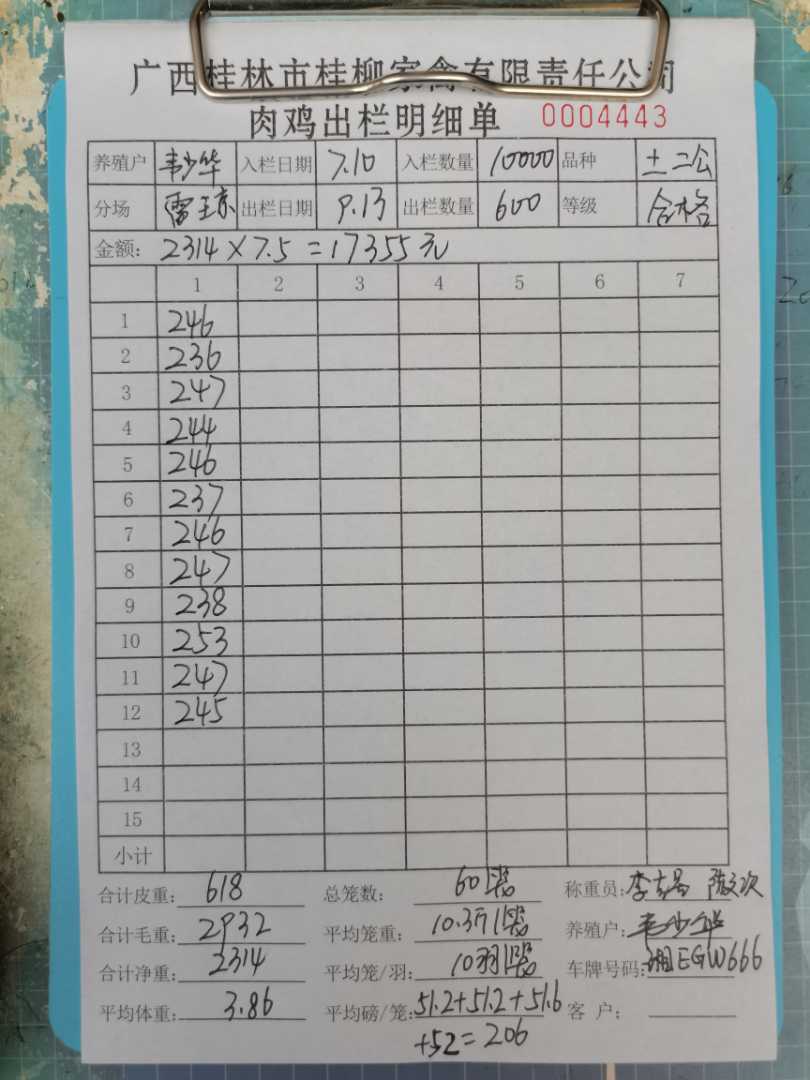 广西桂林市桂柳家禽有限责任公司
肉鸡出栏明细单 0004443
养殖户 韦少华 入栏日期 7.10 入栏数量 10000 品种 土二公
分场 出栏日期 9.13 出栏数量 600 等级 合格
金额: 2314×7.5=17355元
1 2 3 4 5 6 7
1 246
2 236
3 247
4 244
5 246
6 237
7 246
8 247
9 238
10 253
11 247
12 245
13
14
15
小计
合计皮重: 618 总笼数: 60 称重员:
合计毛重: 2932 平均笼重: 10.3斤 养殖户: 韦少华
合计净重: 2314 平均笼/羽: 10羽 车牌号码: 湘EGW666
平均体重: 3.86 平均磅/笼: 51.2+51.2+51.6 客 户:
+52=206